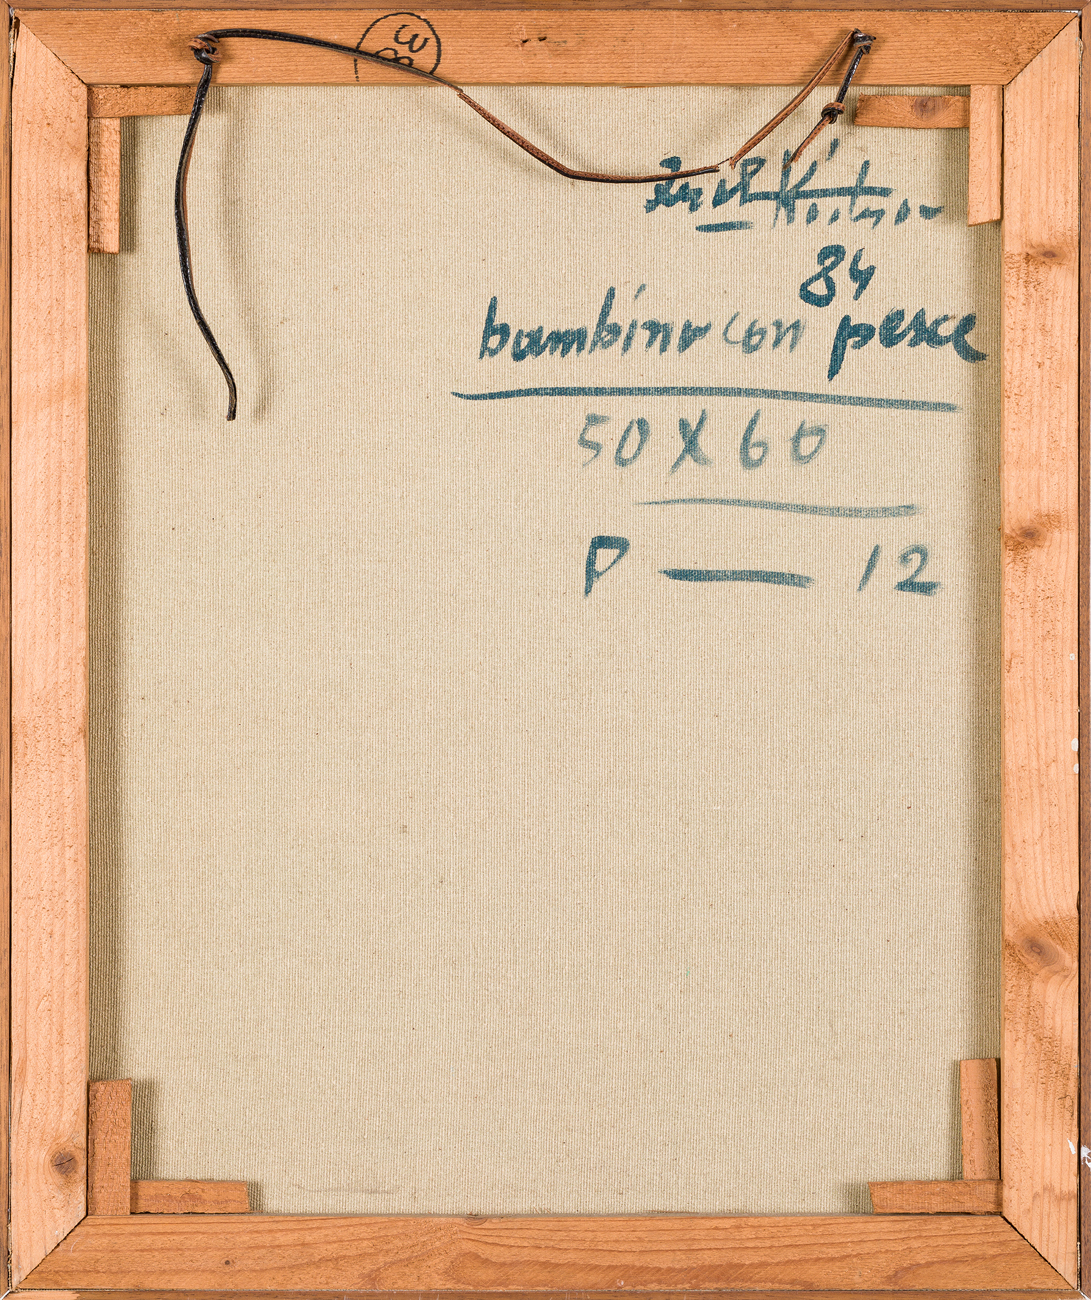 84
bambino con pesce
50 X 60
P — 12